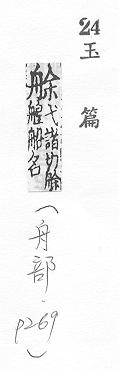 24
玉篇
艅弋諸切艅
艎船名
(舟部·p269)